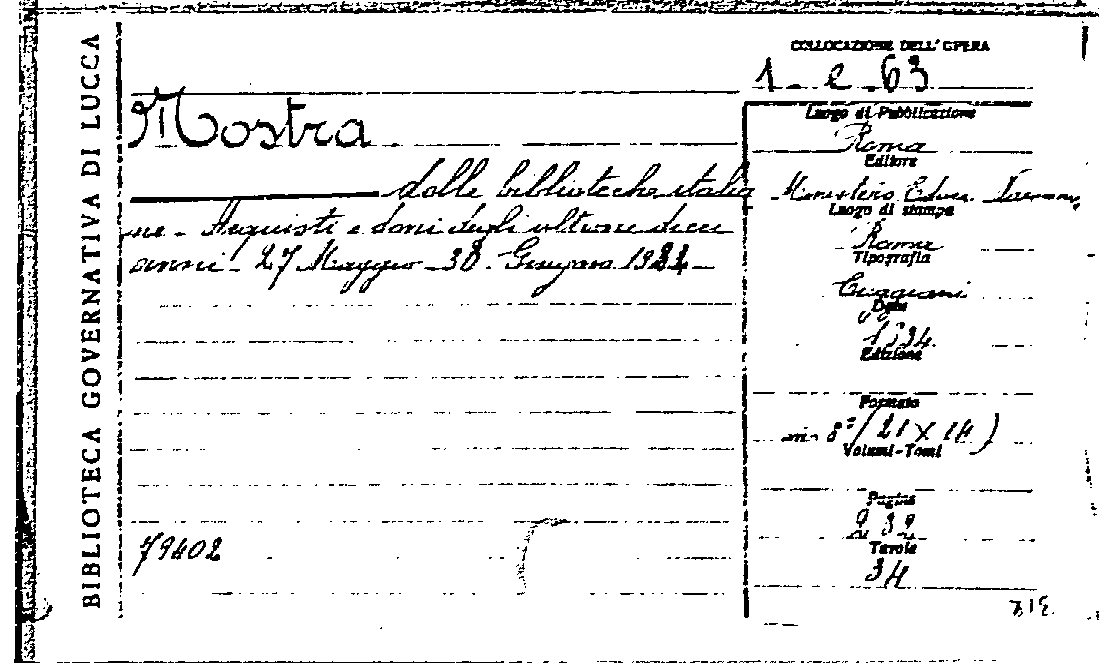 BIBLIOTECA GOVERNATIVA DI LUCCA
COLLOCAZIONE DELL'OPERA
1 - e - 63
Mostra
delle biblioteche italia
ne - Acquisti e doni degli ultimi dieci
anni - 27 Maggio - 30
79402
Luogo di Pubblicazione
Roma
Editore
Ministero Educ.
Luogo di stampa
Roma
Tipografia
Cuggiani
Data
1934
Edizione
Formato
in 8° (21 x 14)
Volumi-Tomi
Pagine
232
Tavole
34